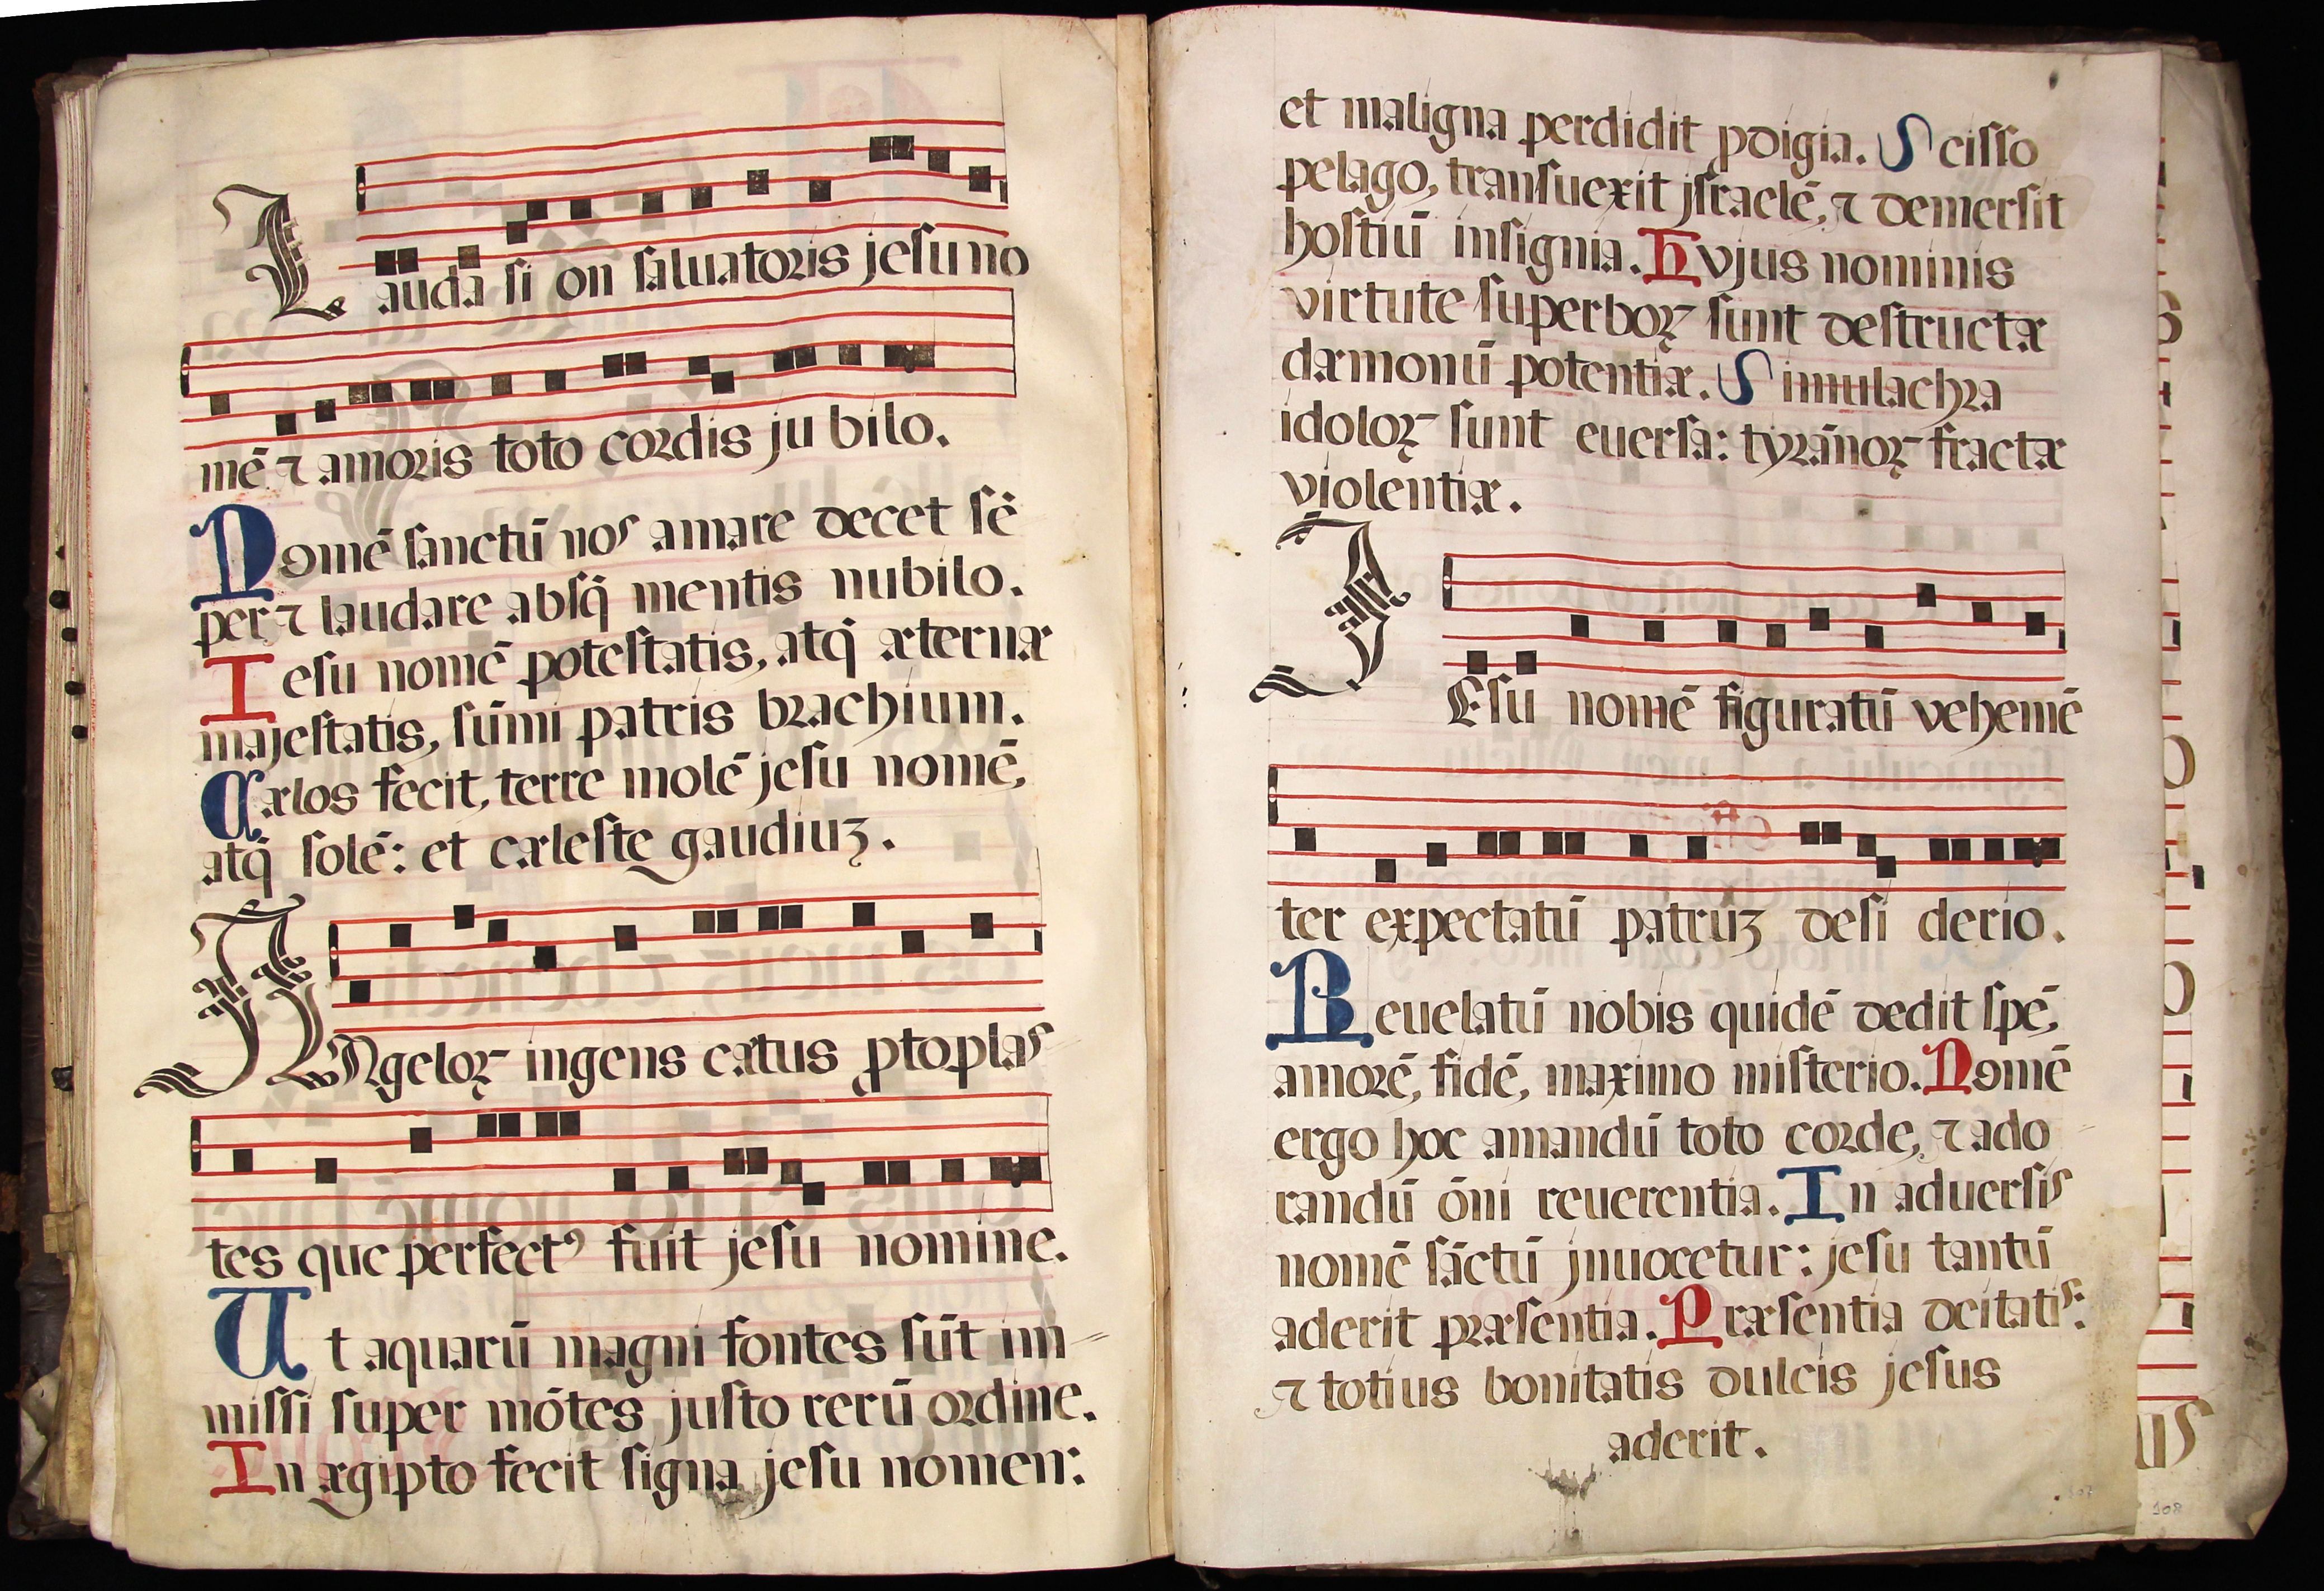 Lauda si on saluatoris jesu no
mē ⁊ amoris toto cordis ju bilo.
Nomē sanctū nos amare decet sē
per ⁊ laudare absq̃ mentis nubilo.
Iesu nomē potestatis, atq̃ æternæ
majestatis, sūmi patris brachium.
Cælos fecit, terre molē jesu nomē,
atq̃ solē: et cæleste gaudiuꝫ.
ANgeloꝝ ingens cætus ꝓtoplas
tes que perfectꝰ fuit jesu nomine.
Ut aquarū magni fontes sūt im
missi super mōtes justo rerū ordine.
In ægipto fecit signa jesu nomen:
et maligna perdidit ꝓdigia. Scisso
pelago, transuexit jsraelē, ⁊ demersit
hostiū insignia. Hvjus nominis
virtute superboꝝ sunt destructæ
dæmonū potentiæ. Simulachra
idoloꝝ sunt euersa: tyrānoꝝ fractæ
violentiæ.
JEsu nomē figuratū vehemē
ter expectatū patruꝫ desi derio.
Reuelatū nobis quidē dedit spē,
amorē, fidē, maximo misterio. Nomē
ergo hoc amandū toto corde, ⁊ ado
randū ōni reuerentia. In aduersis
nomē sāctū jnuocetur: jesu tantū
aderit præsentia. Præsentia deitatis:
⁊ totius bonitatis dulcis jesus
aderit.
108